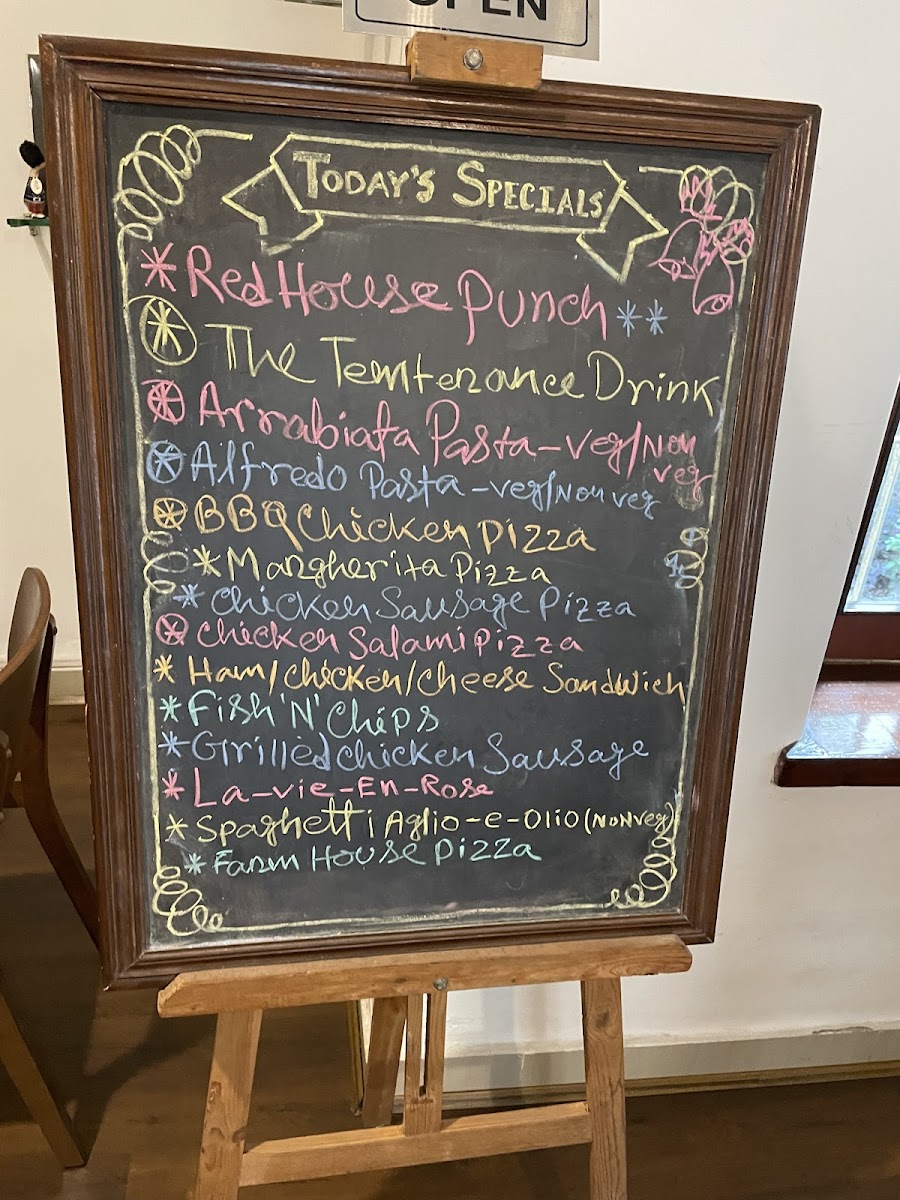 OPEN
TODAY'S SPECIALS
* Red House Punch **
* The Temterance Drink
* Arrabiata Pasta - veg/Non
veg
* Alfredo Pasta - veg/Non veg
* BBQ Chicken Pizza
* Margherita Pizza
* Chicken Sausage Pizza
* Chicken Salami Pizza
* Ham/Chicken/Cheese Sandwich
* Fish 'N' Chips
* Grilled Chicken Sausage
* La-vie-En-Rose
* Spaghetti Aglio-e-Olio (NON veg)
* Farm House Pizza